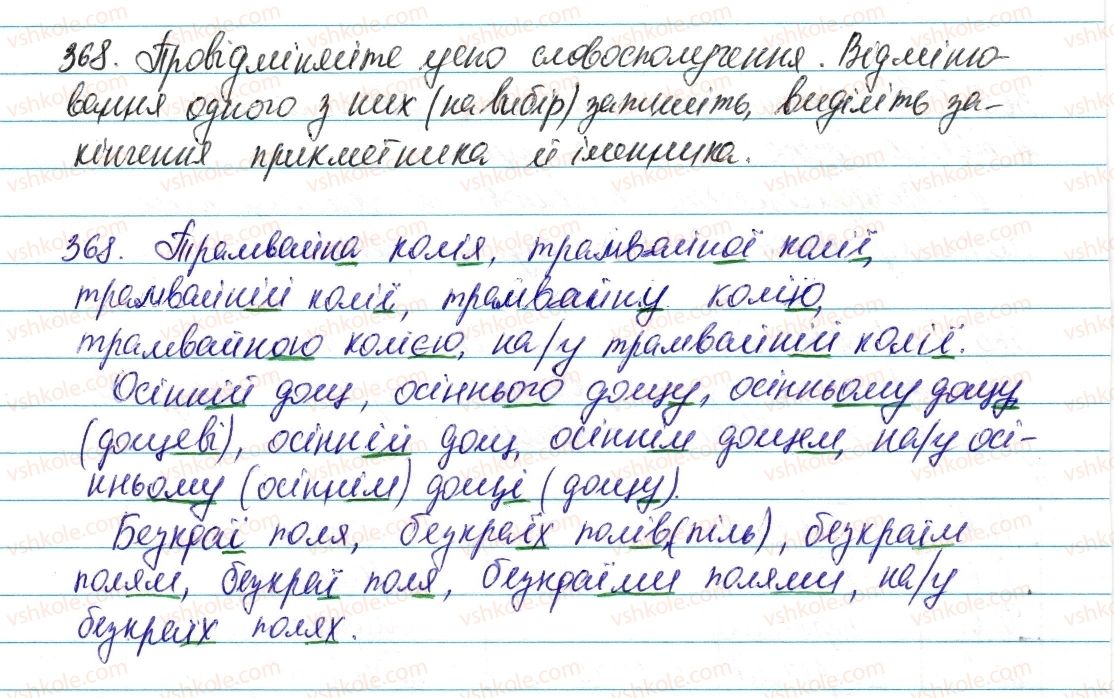 368. Провідміняйте усно словосполучення. Відміню-
вання одного з них (на вибір) запишіть, виділіть за-
кінчення прикметника й іменника.
368. Трамвайна колія, трамвайної колії,
трамвайній колії, трамвайну колію,
трамвайною колією, на/у трамвайній колії.
Осінній дощ, осіннього дощу, осінньому дощу
(дощеві), осінній дощ, осіннім дощем, на/у осі-
нньому (осіннім) дощі (дощу).
Безкраї поля, безкраїх полів (піль), безкраїм
полям, безкраї поля, безкраїми полями, на/у
безкраїх полях.